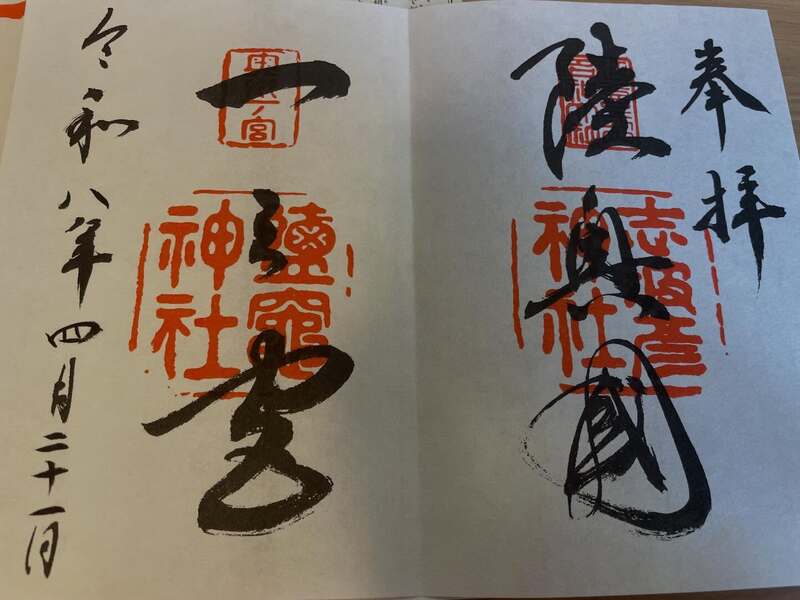 奉拝
陸奥國
志波彦神社
一之宮
鹽竈神社
令和八年四月二十一日